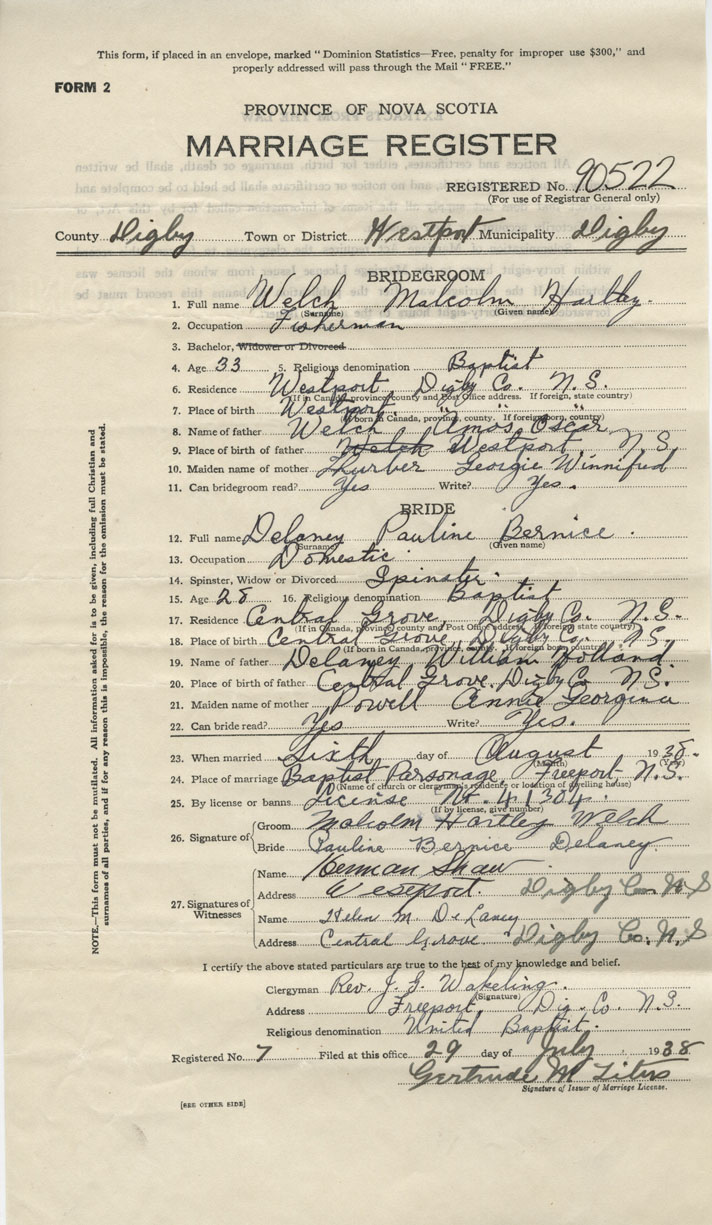 This form, if placed in an envelope, marked "Dominion Statistics—Free, penalty for improper use $300," and
properly addressed will pass through the Mail "FREE."
FORM 2
PROVINCE OF NOVA SCOTIA
MARRIAGE REGISTER
REGISTERED No. 90522
(For use of Registrar General only)
County Digby Town or District Westport Municipality Digby
BRIDEGROOM
1. Full name Welch Malcolm Hartley.
(Surname) (Given name)
2. Occupation Fisherman
3. Bachelor, Widower or Divorced
4. Age 33 5. Religious denomination Baptist
6. Residence Westport, Digby Co. N.S.
(If in Canada, province, county and Post Office address. If foreign, state country)
7. Place of birth Westport, " " "
(If born in Canada, province, county. If foreign born, country)
8. Name of father Welch Amos Oscar
9. Place of birth of father Welch Westport N.S.
10. Maiden name of mother Thurber Georgie Winnifred
11. Can bridegroom read? Yes Write? Yes.
BRIDE
12. Full name Delaney Pauline Bernice.
(Surname) (Given name)
13. Occupation Domestic.
14. Spinster, Widow or Divorced Spinster.
15. Age 28 16. Religious denomination Baptist
17. Residence Central Grove, Digby Co. N.S.
(If in Canada, province, county and Post Office address, if foreign state country)
18. Place of birth Central Grove, Digby Co. N.S.
(If born in Canada, province, county. If foreign born country)
19. Name of father Delaney, William Holland
20. Place of birth of father Central Grove. Digby Co N.S.
21. Maiden name of mother Powell Annie Georgina
22. Can bride read? Yes Write? Yes.
23. When married Sixth day of August 1938.
(Month) (Year)
24. Place of marriage Baptist Parsonage, Freeport, N.S.
(Name of church or clergyman's residence or location of dwelling house)
25. By license or banns License No. 41304.
(If by license, give number)
26. Signature of
Groom Malcolm Hartley Welch
Bride Pauline Bernice Delaney
27. Signatures of Witnesses
Name Herman Shaw
Address Wesport. Digby Co. N.S
Name Helen M. DeLaney
Address Central Grove Digby Co. N.S
I certify the above stated particulars are true to the best of my knowledge and belief.
Clergyman Rev. J. G. Wakeling.
(Signature)
Address Freeport, Dig. Co. N.S.
Religious denomination United Baptist.
Registered No. 7 Filed at this office 29 day of July 1938
Gertrude M Titus
Signature of Issuer of Marriage License.
[SEE OTHER SIDE]
NOTE.—This form must not be mutilated. All information asked for is to be given, including full Christian and
surnames of all parties, and if for any reason this is impossible, the reason for the omission must be stated.